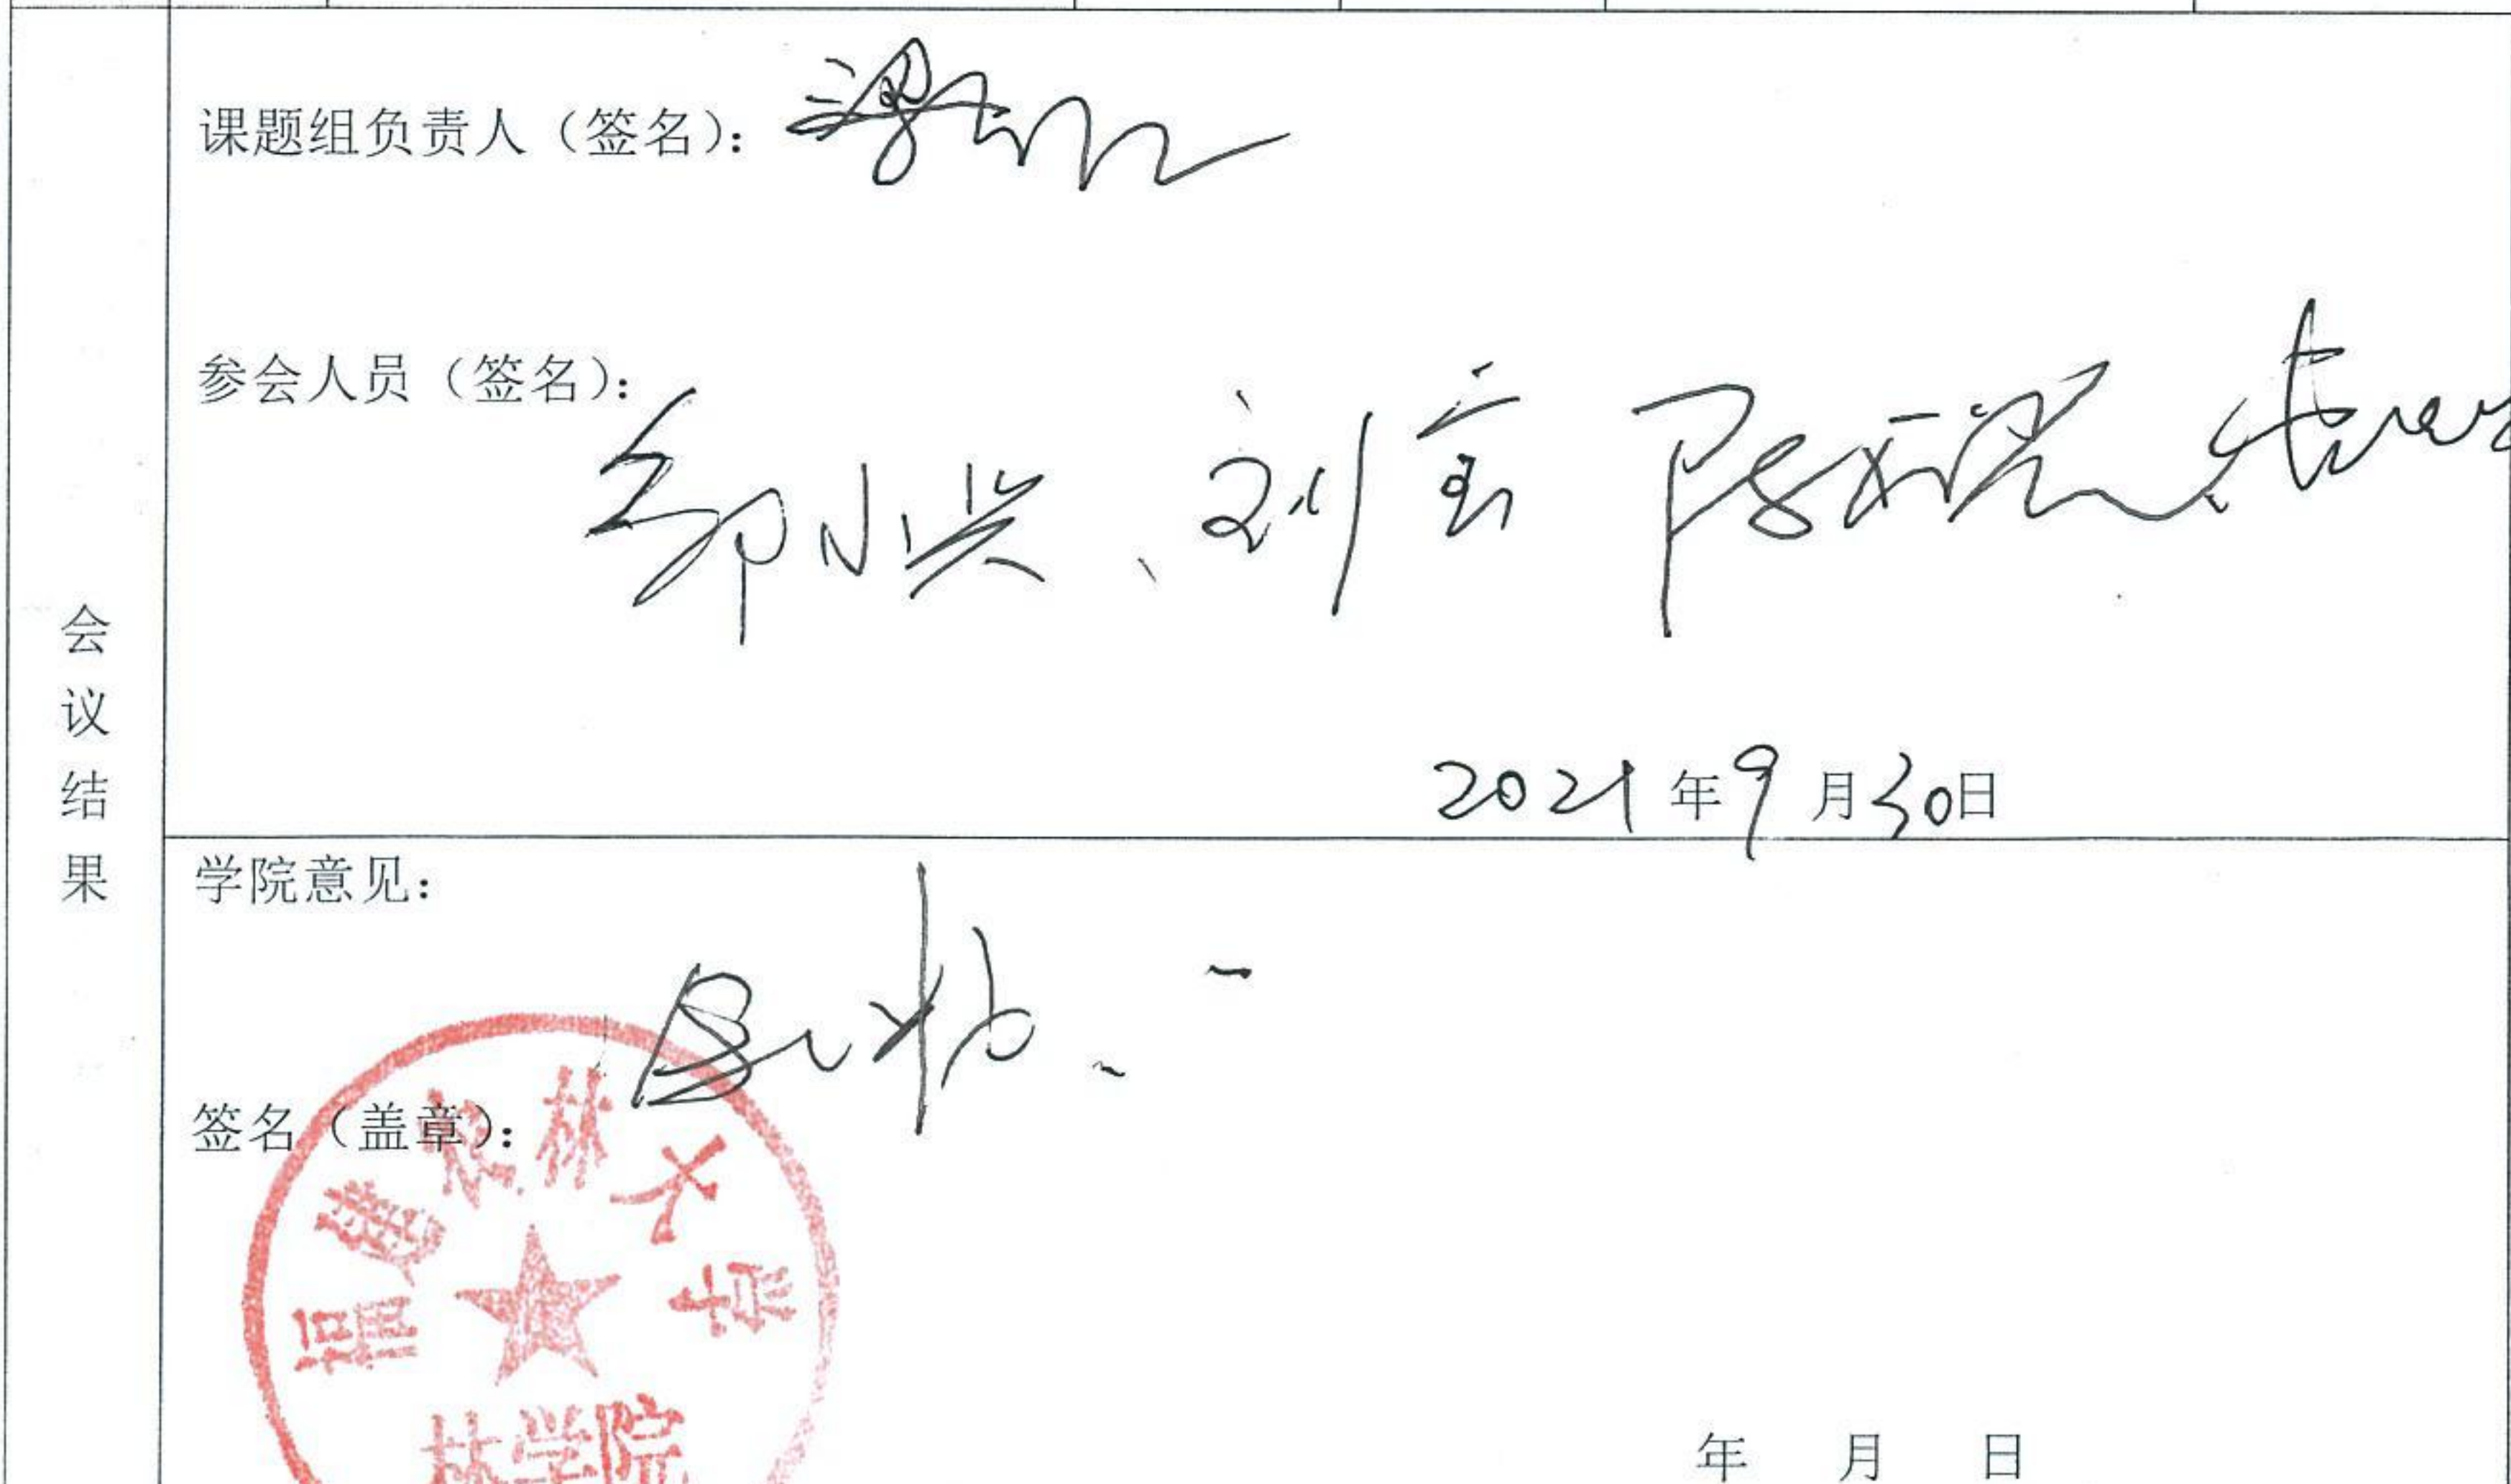 课题组负责人（签名）：
参会人员（签名）：
邹小兴、刘宝
2021年9月30日
会议结果
学院意见：
签名（盖章）：
福建农林大学
林学院
年 月 日